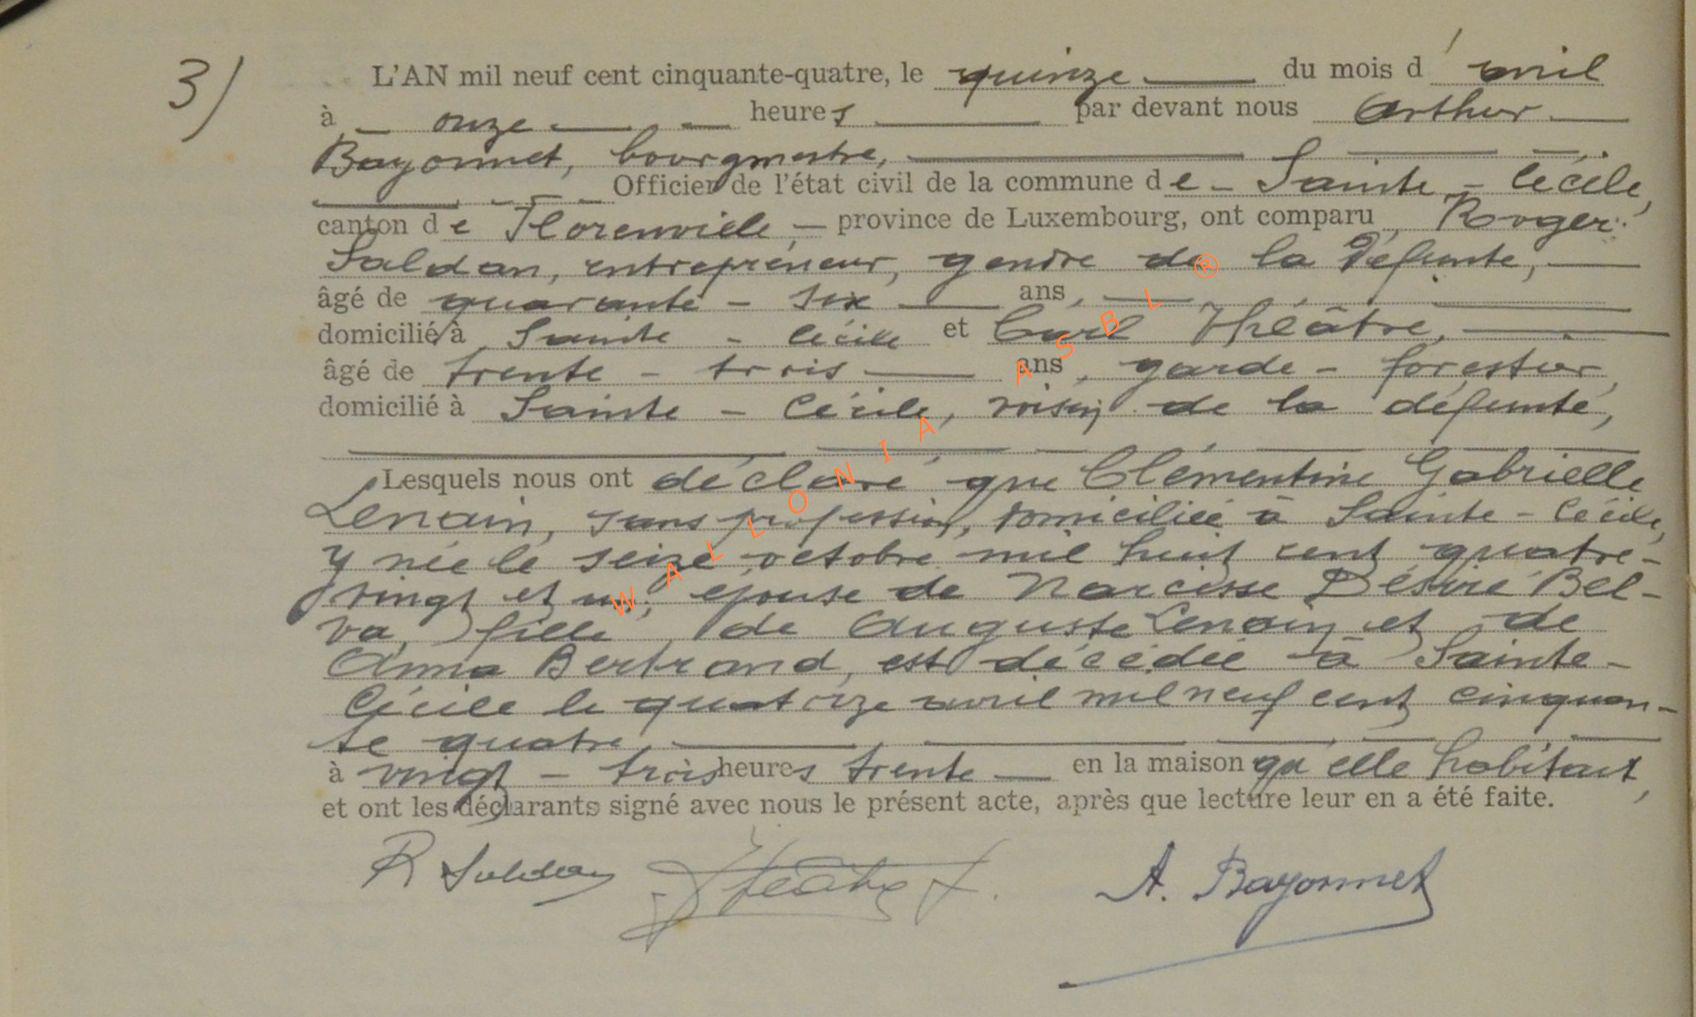 3)
L'AN mil neuf cent cinquante-quatre, le quinze du mois d'avril
à onze heures par devant nous Arthur
Bayonnet, bourgmestre,
Officier de l'état civil de la commune de Sainte-Cécile,
canton de Florenville, province de Luxembourg, ont comparu, Roger
Saldan, entrepreneur, gendre de la défunte,
âgé de quarante-six ans,
domicilié à Sainte-Cécile et Carl Théâtre,
âgé de trente-trois ans, garde-forestier,
domicilié à Sainte-Cécile, voisin de la défunte,
Lesquels nous ont déclaré que Clémentine Gabrielle
Lenain, sans profession, domiciliée à Sainte-Cécile,
y née le seize octobre mil huit cent quatre-
vingt et un, épouse de Narcisse Désiré Bel-
va, fille de Auguste Lenain et de
Anna Bertrand, est décédée à Sainte-
Cécile le quatorze avril mil neuf cent cinquan-
te quatre
à vingt-trois heures trente en la maison qu'elle habitait,
et ont les déclarants signé avec nous le présent acte, après que lecture leur en a été faite.
R Saldan Théâtre A. Bayonnet
WALLONIA ASBL ®